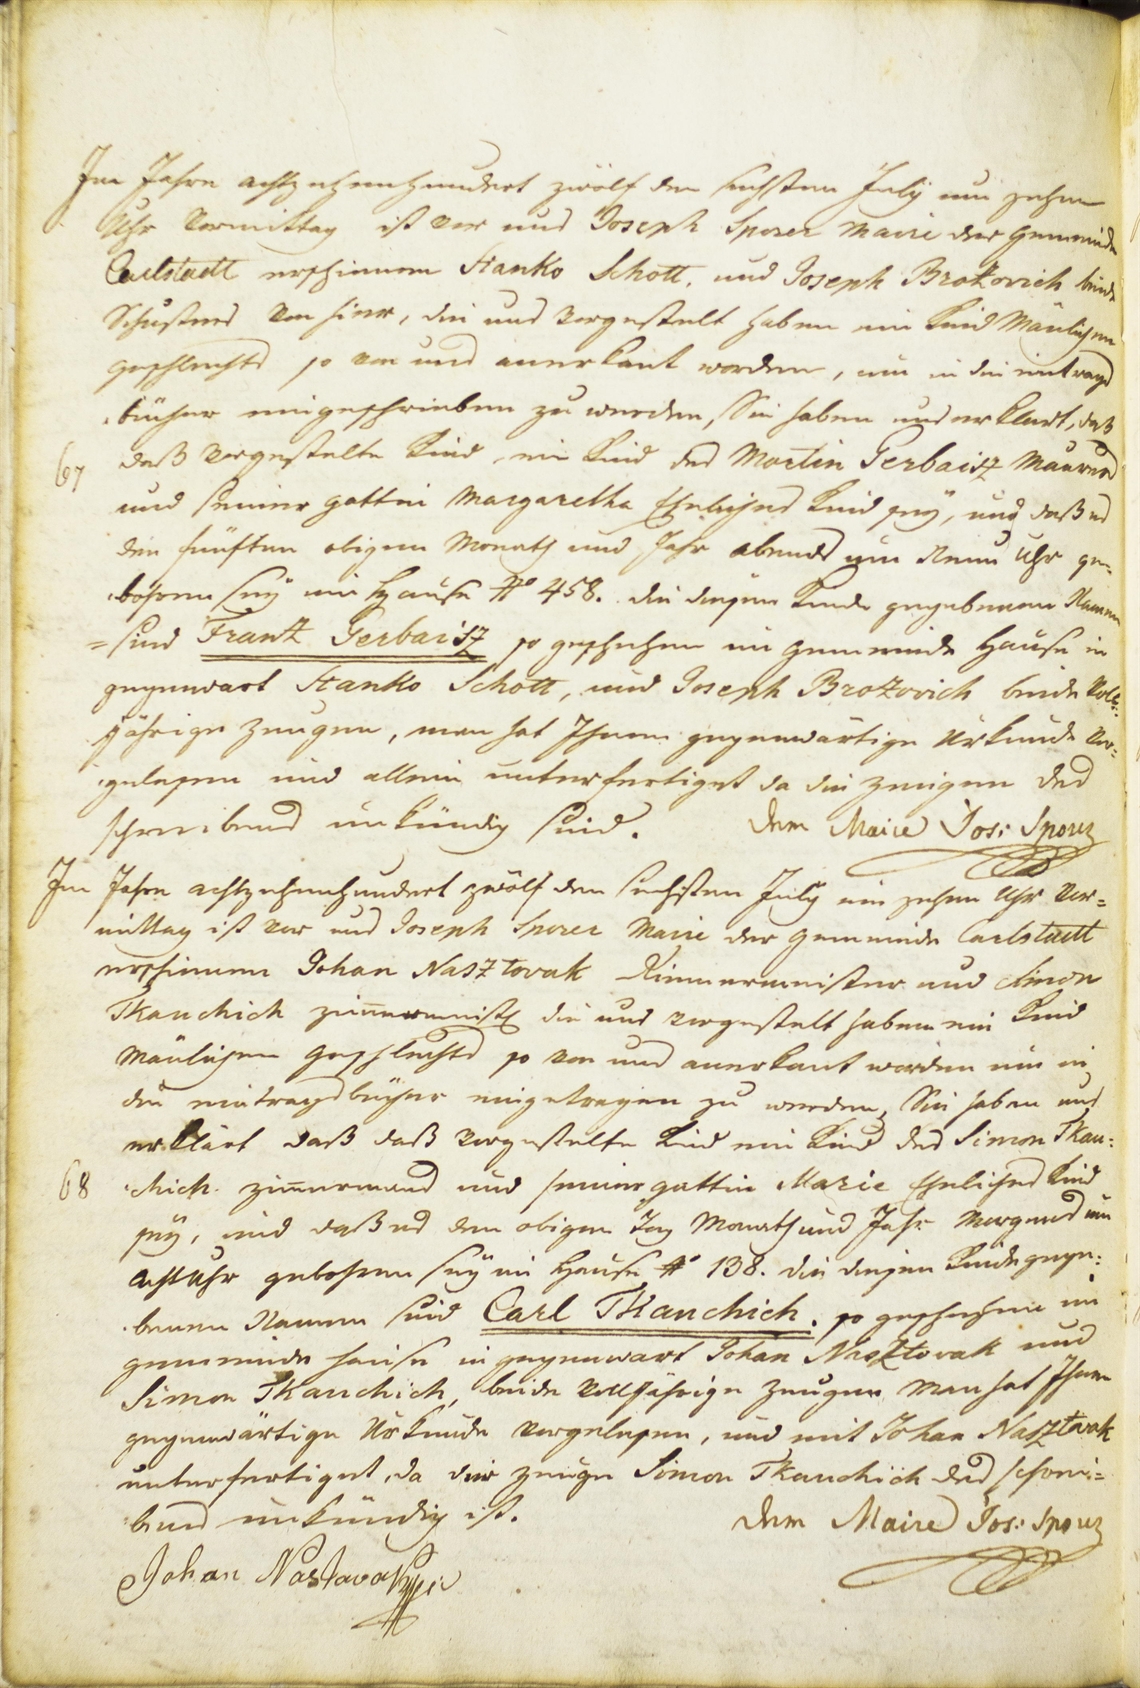 Im Jahre achtzehenhundert zwölf den sechsten July um zehen
Uhr Vormittag ist vor uns Joseph Sporer Maire der Gemeinde
Carlstadt erschienen Stanko Schott, und Joseph Brozovich beide
Schusters von hier, die uns vorgestelt haben ein Kind Mänlichen
geschlechts so von uns anerkant worden, um in die eintrags
bücher eingeschrieben zu werden, Sie haben uns erklärt, daß
67 daß vorgestelte Kind, ein Kind des Martin Gerbaisz Maurers
und seiner gattin Margaretha Ehliches Kind seÿ, und daß es
den fünften obigen Monath und Jahr abends um Neun Uhr ge=
bohren seÿ im Hause No 458. die diesen Kinde gegebenen Namen
=sind Frantz Gerbaisz so geschehen im gemeinde Hause in
gegenwart Stanko Schott, und Joseph Brozovich beide Voll=
jährige Zeugen, man hat Ihnen gegenwärtige Urkunde vor=
gelesen und allein unterfertiget da die Zeugen des
schreibens unkündig sind. Dem Maire Jos: Sporer
Im Jahre achtzehenhundert zwölf den sechsten July um zehen Uhr Vor=
mittag ist vor uns Joseph Sporer Maire der Gemeinde Carlstadt
erschienen Johan Nasztovak Riemermeister und Simon
Tkauchich zimermeist die uns vorgestelt haben ein Kind
Mänlichen geschlechts so von uns anerkant worden um in
die eintragsbücher eingetragen zu werden, Sie haben uns
erklärt daß daß vorgestelte Kind ein Kind des Simon Tkau=
68 chich zimermans und seiner gattin Marie Ehliches Kind
seÿ, und daß es den obigen Tag Monath und Jahr Morgens um
acht Uhr gebohren seÿ im Hause No 138. die diesen Kinde gege=
benen Namen sind Carl Tkauchich. so geschehen im
gemeinde hause in gegenwart Johan Nasztovak und
Simon Tkauchich, beide Volljährige Zeugen man hat Ihnen
gegenwärtige Urkunde vorgelesen, und mit Johan Nasztovak
unterfertiget, da der zeuge Simon Tkauchich des schrei=
bens unkündig ist. Dem Maire Jos: Sporer
Johan Nastavak